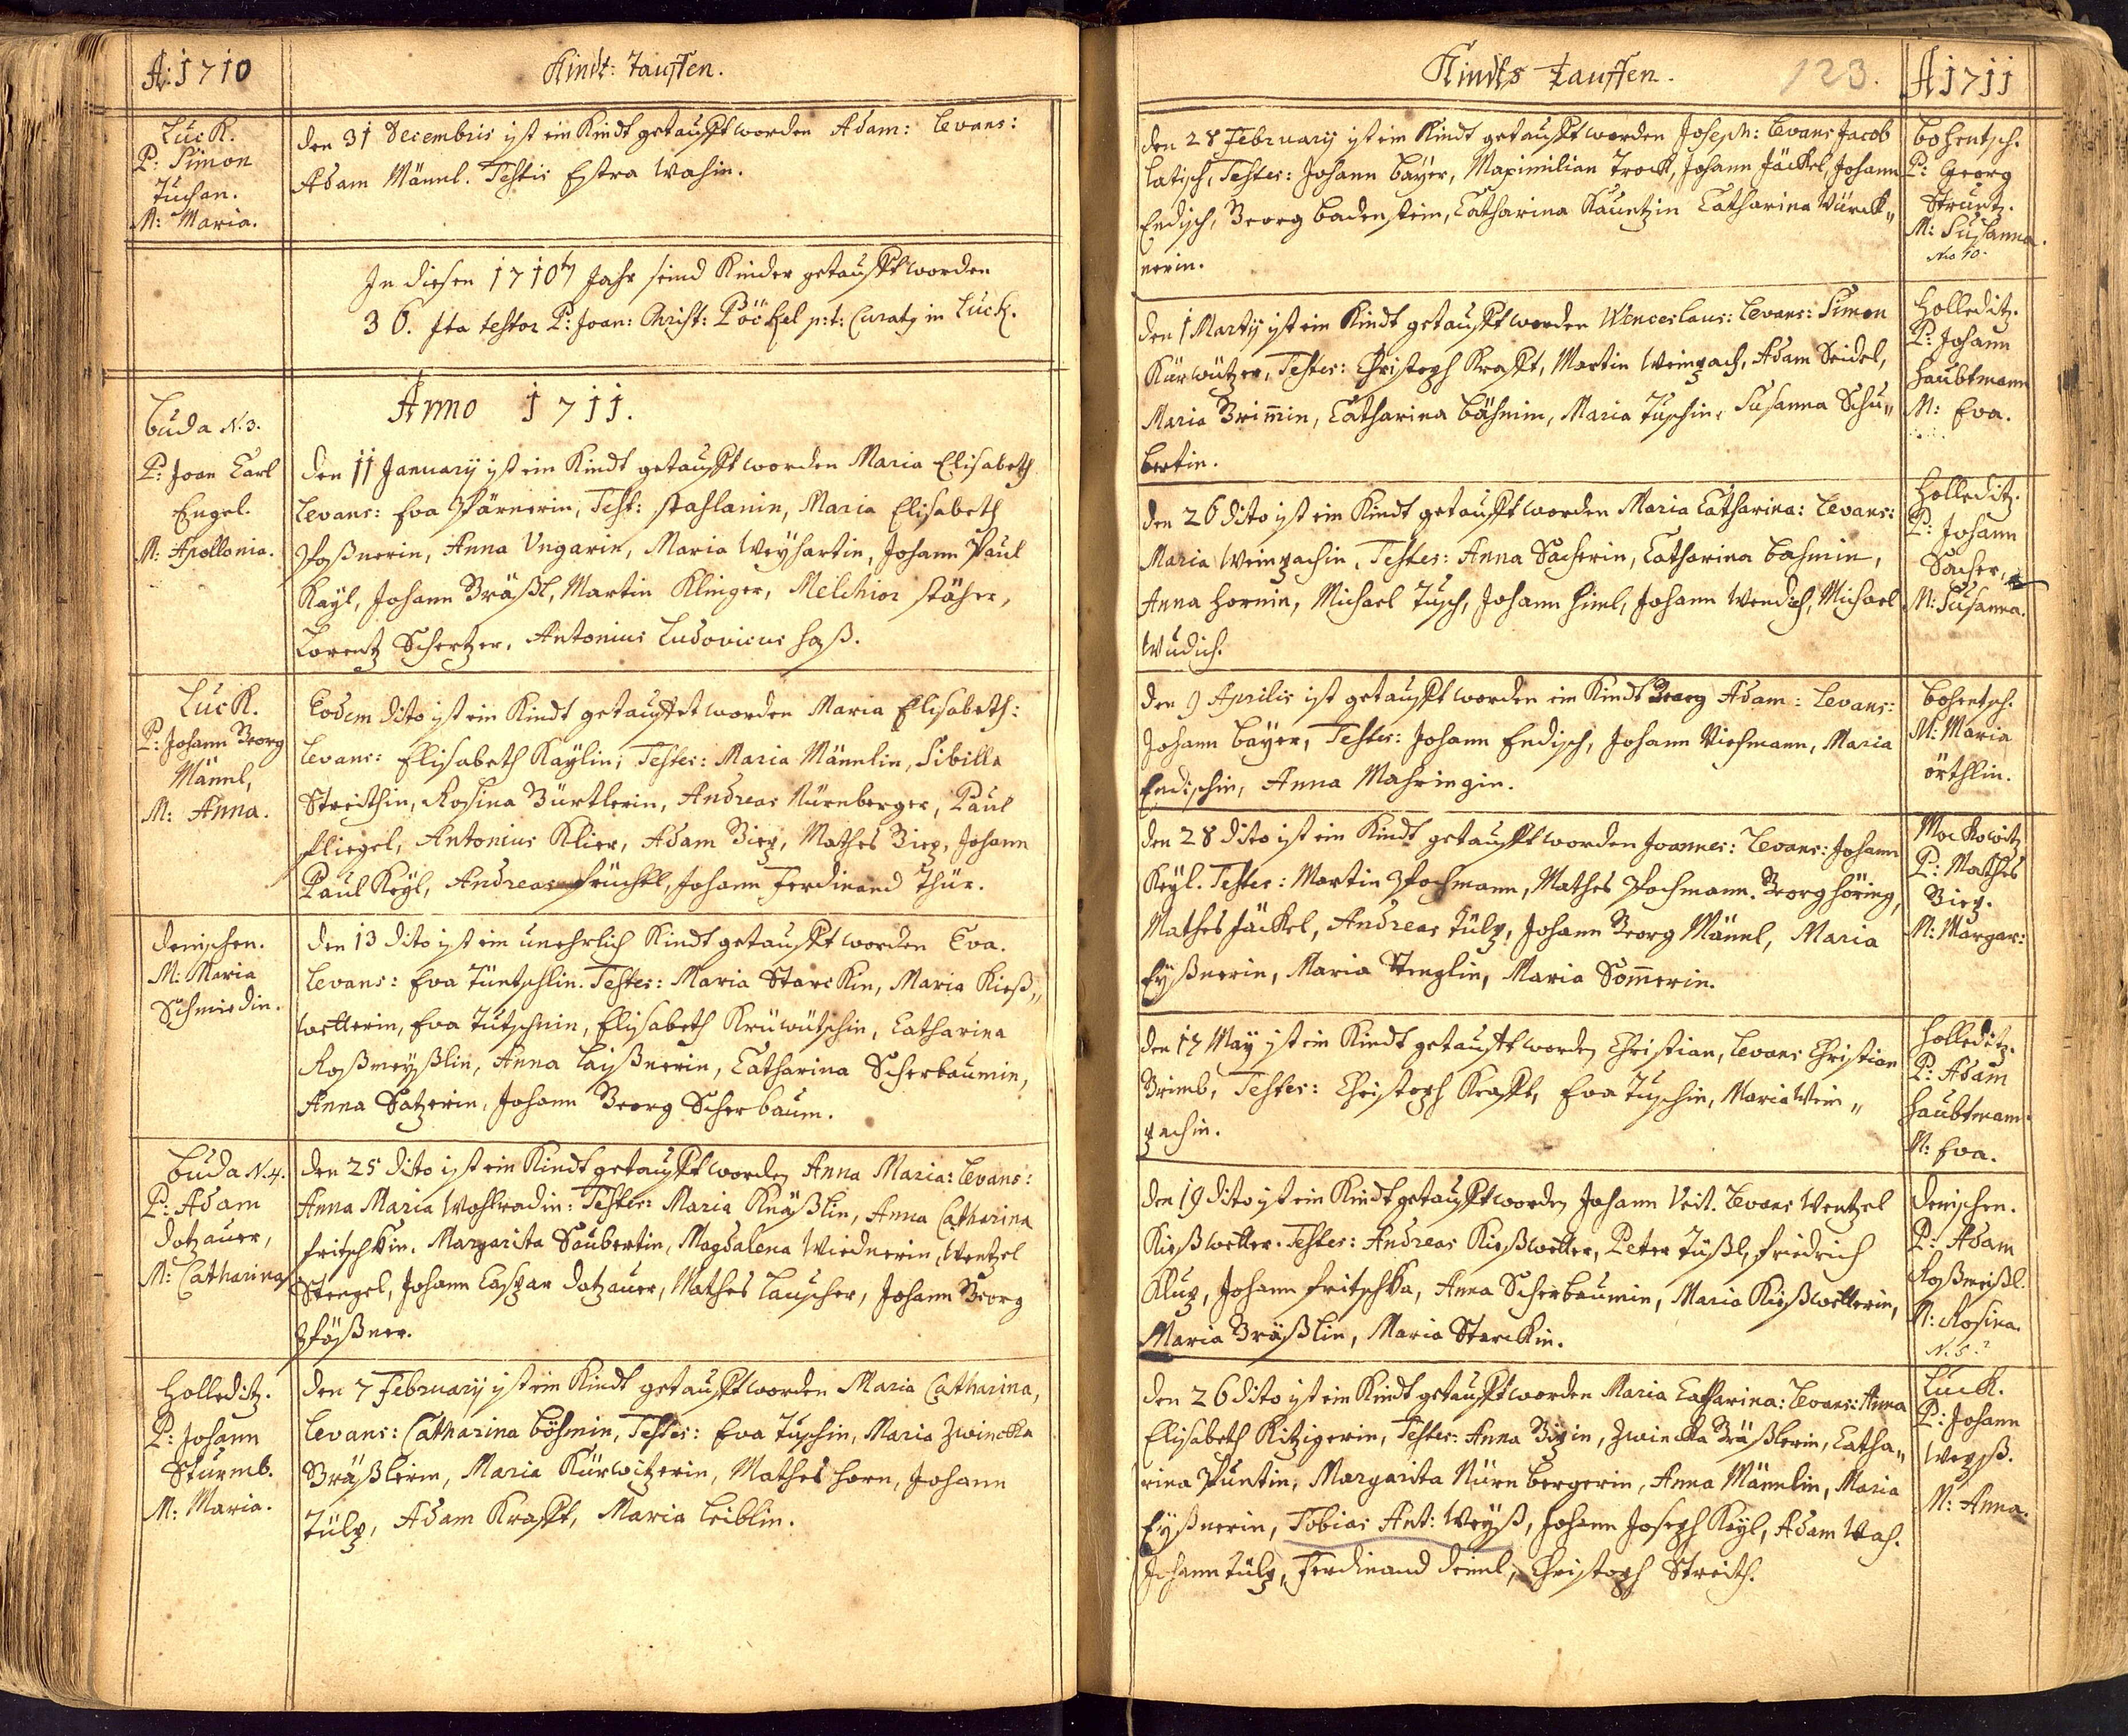 A: 1710
Kindt: Tauffen.
Luck.
P: Simon
Tuchan.
M: Maria.
den 31 Decembris ist ein Kindt getaufft worden Adam: Levans:
Adam Männl. Testis Estra Wahin.
In diesen 1710ten Jahr seind Kinder getaufft worden
36. Ita testor P: Joan: Christ: Pöckel p: t: Curatq in Luck.
Anno 1711.
Buda N. 3.
P: Joan Carl
Engel.
M: Apollonia.
den 11 January ist ein Kindt getaufft worden Maria Elisabeth
Levans: Eva Pfärnerin, Test: Stahlanin, Maria Elisabeth
Poßnerin, Anna Ungarin, Maria Weyhartin, Johann Paul
Kayl, Johann Gräßl, Martin Klinger, Melchior Stäher,
Lorentz Schertzer, Antonius Ludovicus Haß.
Luck.
P: Johann Georg
Männl,
M: Anna.
Eodem dito ist ein Kindt getauffet worden Maria Elisabeth:
Levans: Elisabeth Kaylin, Testes: Maria Männlin, Sibilla
Streithin, Rosina Gürtlerin, Andreas Nürnberger, Paul
Fliegel, Antonius Klier, Adam Görg, Mathes Görg, Johann
Paul Keyl, Andreas Früchtl, Johann Ferdinand Thür.
Denischen.
M: Maria
Schmiedin.
den 13 dito ist ein unehrlich Kindt getaufft worden Eva.
Levans: Eva Tüntschlin. Testes: Maria Starckin, Maria Kieß„
wetterin, Eva Tutschnin, Elisabeth Kruwütschin, Catharina
Roßmeyßlin, Anna Laißnerin, Catharina Scherbaumin,
Anna Satzerin, Johann Georg Scherbaum.
Buda N. 4.
P: Adam
Dotzauer,
M: Catharina
den 25 dito ist ein Kindt getaufft worden Anna Maria: Levans:
Anna Maria Wohlradin: Testes: Maria Knäßlin, Anna Catharina
Fritschkin, Margarita Saubertin, Magdalena Wiednerin, Wentzel
Stengel, Johann Caspar Dotzauer, Mathes Lauscher, Johann Georg
Pfäßner.
Holleditz.
P: Johann
Sturmb.
M: Maria.
den 7 February ist ein Kindt getaufft worden Maria Catharina,
Levans: Catharina Böhmin, Testes: Eva Tuschin, Maria Zwinckka
Gräßlerin, Maria Kürwitzerin, Mathes Horn, Johann
Tülp, Adam Krafft, Maria Leiblin.
Kindts Tauffen.
123.
A 1711
den 28 February ist ein Kindt getaufft worden Joseph: Levans Jacob
Latisch, Testes: Johann Bayer, Maximilian Trock, Johann Jäckel, Johann
Endisch, Georg Badenstein, Catharina Kauntzin Catharina Würck„
nerin.
Bohentsch.
P: Georg
Struntz.
M: Susanna.
Nro 10.
den 1 Marty ist ein Kindt getaufft worden Wenceslaus: Levans: Simon
Kürwützer, Testes: Christoph Krafft, Martin Weinpach, Adam Seidel,
Maria Grimmin, Catharina Bähmin, Maria Tuschin, Susanna Schu„
bertin.
Holleditz.
P: Johann
Haubtmann
M: Eva.
den 26 dito ist ein Kindt getaufft worden Maria Catharina: Levans:
Maria Weinpachin, Testes: Anna Sacherin, Catharina Bahmin,
Anna Hornin, Michael Tusch, Johann Himl, Johann Wendich, Michael
Wudich.
Holleditz.
P: Johann
Sacher,
M: Susanna.
den 9 Aprilis ist getaufft worden ein Kindt Georg Adam: Levans:
Johann Bayer, Testes: Johann Endisch, Johann Viehmann, Maria
Endischin, Anna Mahringin.
Bohentsch.
M: Maria
örthlin.
den 28 dito ist ein Kindt getaufft worden Joannes: Levans: Johann
Keyl. Testes: Martin Pochmann, Mathes Pochmann. Georg Höring,
Mathes Jäckel, Andreas Tülp, Johann Georg Männl, Maria
Eyßnerin, Maria Stenglin, Maria Sommerin.
Mockowitz
P: Mathes
Görg.
M: Margar:
den 17 May ist ein Kindt getaufft worden Christian, Levans Christian
Grimb, Testes: Christoph Krafft, Eva Tuschin, Maria Wein„
pachin.
Holleditz.
P: Adam
Haubtmann.
M: Eva.
den 19 dito ist ein Kindt getaufft worden Johann Veit. Levans Wentzel
Kießwetter. Testes: Andreas Kießwetter, Peter Tüßl, Friedrich
Klug, Johann Fritschka, Anna Scherbaumin, Maria Kießwetterin,
Maria Gräßlin, Maria Starckin.
Denischen.
P: Adam
Roßmeißl.
M: Rosina.
N. 5.
den 26 dito ist ein Kindt getaufft worden Maria Catharina: Levans: Anna
Elisabeth Kitzigerin, Testes: Anna Görgin, Zwinckka Gräßlerin, Catha„
rina Puntin, Margarita Nürnbergerin, Anna Männlin, Maria
Eyßnerin, Tobias Ant: Weyß, Johann Joseph Keyl, Adam Wah.
Johann Tülp, Ferdinand Deiml, Christoph Streith.
Luck.
P: Johann
Weyß.
M: Anna.